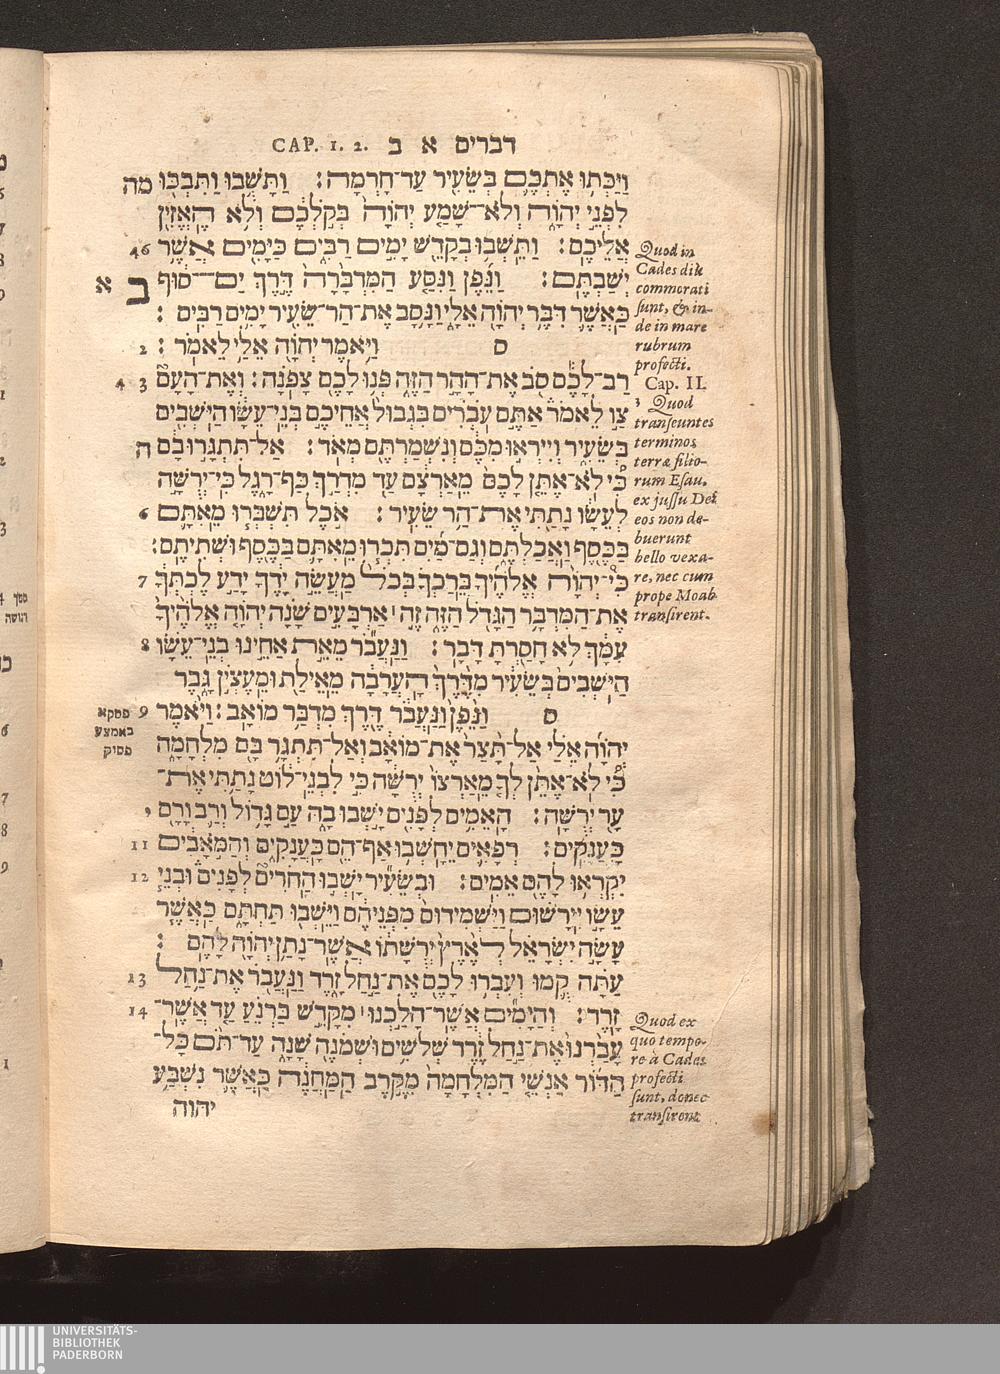 CAP. 1. 2. דברים א ב
וַיַּכְּתוּ אֶתְכֶם בְּשֵׂעִיר עַד־חָרְמָה׃ וַתָּשֻׁבוּ וַתִּבְכּוּ מה
לִפְנֵי יְהוָה וְלֹא־שָׁמַע יְהוָה בְּקֹלְכֶם וְלֹא הֶאֱזִין
אֲלֵיכֶם׃ וַתֵּשְׁבוּ בְקָדֵשׁ יָמִים רַבִּים כַּיָּמִים אֲשֶׁר 46
יְשַׁבְתֶּם׃ וַנֵּפֶן וַנִּסַּע הַמִּדְבָּרָה דֶּרֶךְ יַם־סוּף ב א
כַּאֲשֶׁר דִּבֶּר יְהוָה אֵלָי וַנָּסָב אֶת־הַר־שֵׂעִיר יָמִים רַבִּים׃
ס וַיֹּאמֶר יְהוָה אֵלַי לֵאמֹר׃ 2
רַב־לָכֶם סֹב אֶת־הָהָר הַזֶּה פְּנוּ לָכֶם צָפֹנָה׃ וְאֶת־הָעָם 3 4
צַו לֵאמֹר אַתֶּם עֹבְרִים בִּגְבוּל אֲחֵיכֶם בְּנֵי־עֵשָׂו הַיֹּשְׁבִים
בְּשֵׂעִיר וְיִירְאוּ מִכֶּם וְנִשְׁמַרְתֶּם מְאֹד׃ אַל־תִּתְגָּרוּ בָם ה
כִּי לֹא־אֶתֵּן לָכֶם מֵאַרְצָם עַד מִדְרַךְ כַּף־רָגֶל כִּי־יְרֻשָּׁה
לְעֵשָׂו נָתַתִּי אֶת־הַר שֵׂעִיר׃ אֹכֶל תִּשְׁבְּרוּ מֵאִתָּם 6
בַּכֶּסֶף וַאֲכַלְתֶּם וְגַם־מַיִם תִּכְרוּ מֵאִתָּם בַּכֶּסֶף וּשְׁתִיתֶם׃
כִּי יְהוָה אֱלֹהֶיךָ בֵּרַכְךָ בְּכֹל מַעֲשֵׂה יָדֶךָ יָדַע לֶכְתְּךָ 7
אֶת־הַמִּדְבָּר הַגָּדֹל הַזֶּה זֶה׀ אַרְבָּעִים שָׁנָה יְהוָה אֱלֹהֶיךָ
עִמָּךְ לֹא חָסַרְתָּ דָּבָר׃ וַנַּעֲבֹר מֵאֵת אַחֵינוּ בְנֵי־עֵשָׂו 8
הַיֹּשְׁבִים בְּשֵׂעִיר מִדֶּרֶךְ הָעֲרָבָה מֵאֵילַת וּמֵעֶצְיֹן גָּבֶר
ס וַנֵּפֶן וַנַּעֲבֹר דֶּרֶךְ מִדְבַּר מוֹאָב׃ וַיֹּאמֶר 9
יְהוָה אֵלַי אַל־תָּצַר אֶת־מוֹאָב וְאַל־תִּתְגָּר בָּם מִלְחָמָה
כִּי לֹא־אֶתֵּן לְךָ מֵאַרְצוֹ יְרֻשָּׁה כִּי לִבְנֵי־לוֹט נָתַתִּי אֶת־
עָר יְרֻשָּׁה׃ הָאֵמִים לְפָנִים יָשְׁבוּ בָהּ עַם גָּדוֹל וְרַב וָרָם י
כָּעֲנָקִים׃ רְפָאִים יֵחָשְׁבוּ אַף־הֵם כָּעֲנָקִים וְהַמֹּאָבִים 11
יִקְרְאוּ לָהֶם אֵמִים׃ וּבְשֵׂעִיר יָשְׁבוּ הַחֹרִים לְפָנִים וּבְנֵי 12
עֵשָׂו יִירָשׁוּם וַיַּשְׁמִידוּם מִפְּנֵיהֶם וַיֵּשְׁבוּ תַּחְתָּם כַּאֲשֶׁר
עָשָׂה יִשְׂרָאֵל לְאֶרֶץ יְרֻשָּׁתוֹ אֲשֶׁר־נָתַן יְהוָה לָהֶם׃
עַתָּה קֻמוּ וְעִבְרוּ לָכֶם אֶת־נַחַל זָרֶד וַנַּעֲבֹר אֶת־נַחַל 13
זָרֶד׃ וְהַיָּמִים אֲשֶׁר־הָלַכְנוּ׀ מִקָּדֵשׁ בַּרְנֵעַ עַד אֲשֶׁר־ 14
עָבַרְנוּ אֶת־נַחַל זֶרֶד שְׁלֹשִׁים וּשְׁמֹנֶה שָׁנָה עַד־תֹּם כָּל־
הַדּוֹר אַנְשֵׁי הַמִּלְחָמָה מִקֶּרֶב הַמַּחֲנֶה כַּאֲשֶׁר נִשְׁבַּע
יהוה
Quod in
Cades diu
commorati
sunt, & in-
de in mare
rubrum
profecti.
Cap. II.
Quod
transeuntes
terminos
terræ filio-
rum Esau.
ex jussu Dei
eos non de-
buerunt
bello vexa-
re, nec cum
prope Moab
transirent.
Quod ex
quo tempo-
re à Cades
profecti
sunt, donec
transirent
פסקא
באמצע
פסוק
UNIVERSITÄTS-
BIBLIOTHEK
PADERBORN